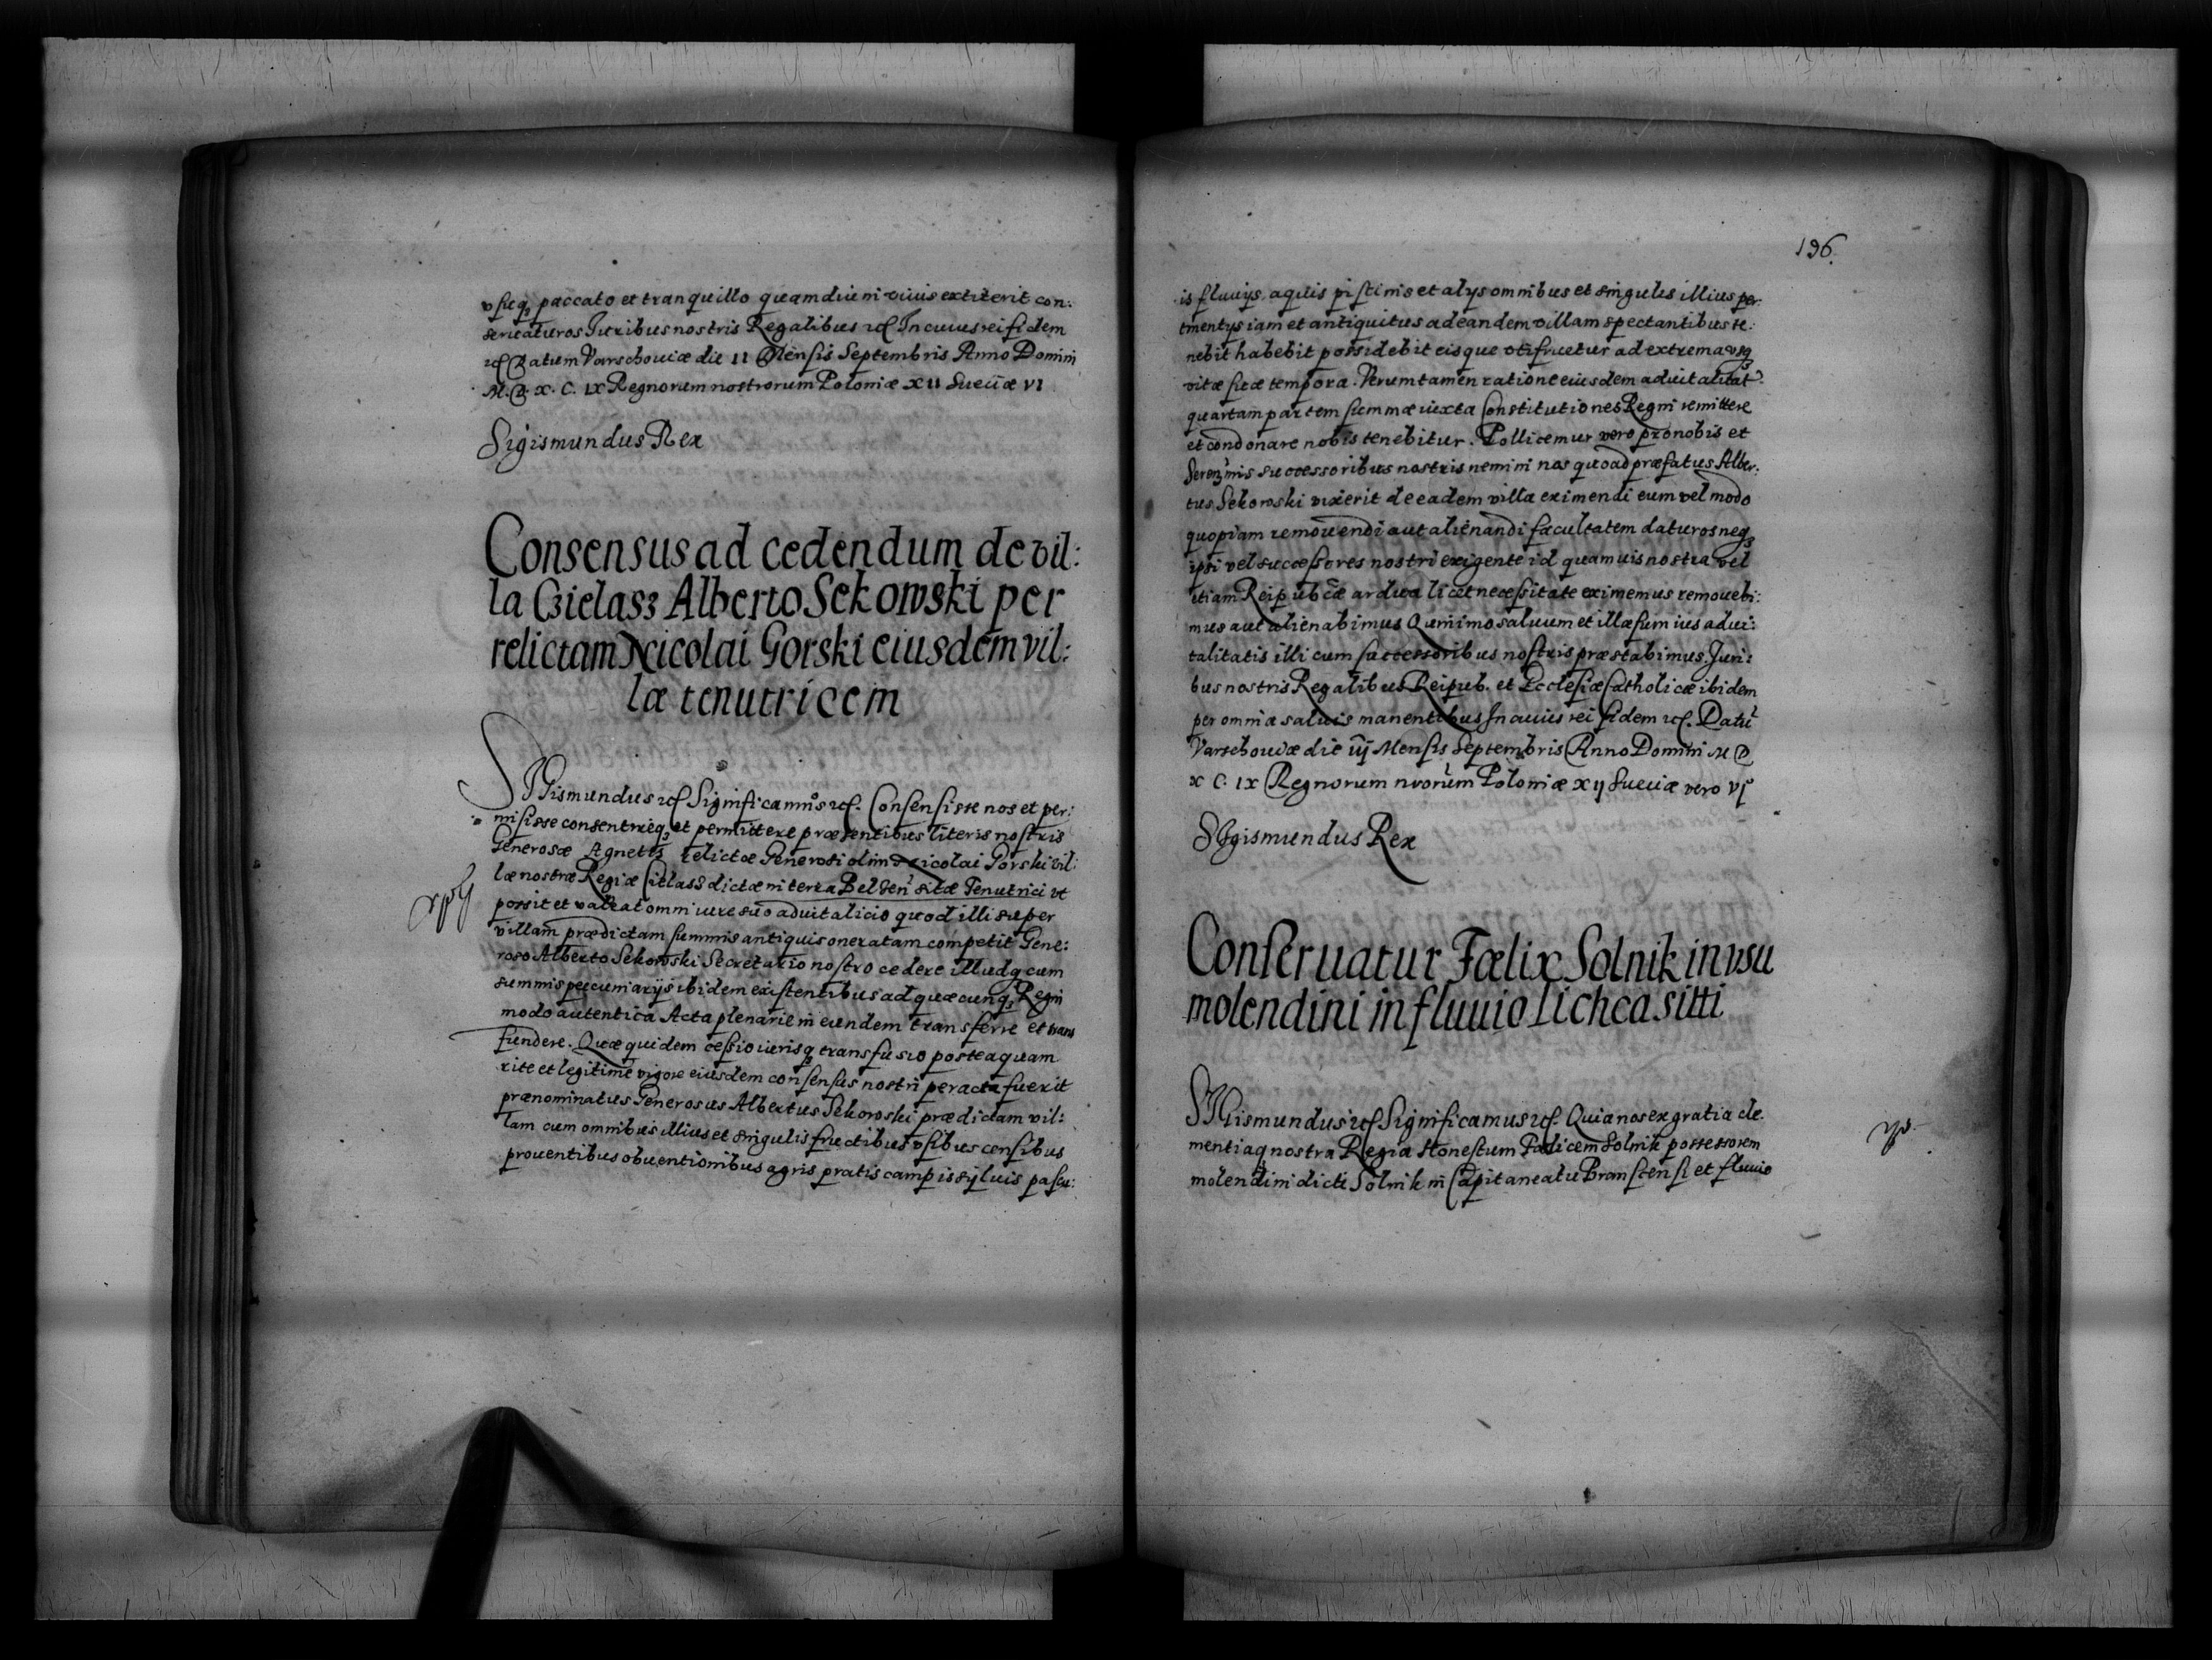 vsuq₃ paccato et tranquillo quamdiu in viuis extiterit con:
seruaturos Iuribus nostris Regalibus etc. In cuius rei fidem
etc. Datum Varschouiæ die 11 Mensis Septembris Anno Domini
M. D. X. C. IX Regnorum nostrorum Poloniæ XII Sueciæ VI
Sigismundus Rex
Consensus ad cedendum de vil:
la Gielasz Alberto Sekowski per
relictam Nicolai Gorski eiusdem vil:
læ tenutricem
SIGismundus etc. Significamus etc. Consensisse nos et per:
misisse consentireq₃ et permittere præsentibus literis nostris
Generosæ Agnetis relictæ Generosi olim Nicolai Gorski vil:
læ nostræ Regiæ Cielasz dictæ in terra Belsen̄ sitæ Tenutrici vt
possit et valeat omni iure suo aduitalicio quod illi super
villam prædictam summis antiquis oneratam competit Gene:
roso Alberto Sekowski Secretario nostro cedere illudq₃ cum
summis pecuniarijs ibidem existentibus ad quæcunq₃ Regni
modo autentica Acta plenarie in eundem transferre et trans
fundere. Quæ quidem cessio iurisq₃ transfusio posteaquam
rite et legitime vigore eiusdem consensus nostri peracta fuerit
prænominatus Generosus Albertus Sekowski prædictam vil:
lam cum omnibus illius et singulis fructibus vsibus censibus
prouentibus obuentionibus agris pratis campis syluis pascu:
196.
is fluuijs aquis piscinis et alys omnibus et singulis illius per:
tinentys iam et antiquitus ad eandem villam spectantibus te:
nebit habebit possidebit eisque vtifruetur ad extrema vsq₃
vitæ suæ tempora. Verumtamen ratione eiusdem aduitalitat̄.
quartam partem summæ iuxta Constitutiones Regni remittere
et condonare nobis tenebitur. Pollicemur vero pro nobis et
Serenīmis successoribus nostris nemini nos quoad præfatus Alber:
tus Sekowski vixerit de eadem villa eximendi eum vel modo
quopiam remouendi aut alienandi facultatem daturos neq₃
ipsi vel successores nostri exigente id quamuis nostra vel
etiam Reipubcæ ardua licet necessitate eximemus remouebi:
mus aut alienabimus Quinimo saluum et illæsum ius adui:
talitatis illi cum successoribus nostris præstabimus. Iuri:
bus nostris Regalibus Reipub. et Ecclesiæ Catholicæ ibidem
per omnia saluis manentibus In cuius rei fidem etc. Datū
Varschouiæ die iij Mensis Septembris Anno Domini M D
X C. IX Regnorum nr̄orum Poloniæ XIJ Sueciæ vero VI
SIgismundus Rex
Conseruatur Fælix Solnik in vsu
molendini in fluuio Lichca sitti
SIGismundus etc. Significamus etc. Quia nos ex gratia cle
mentiaq₃ nostra Regia Honestum Fælicem Solnik possessorem
molendini dicti Solnik in Capitaneatu Branscensi et fluuio